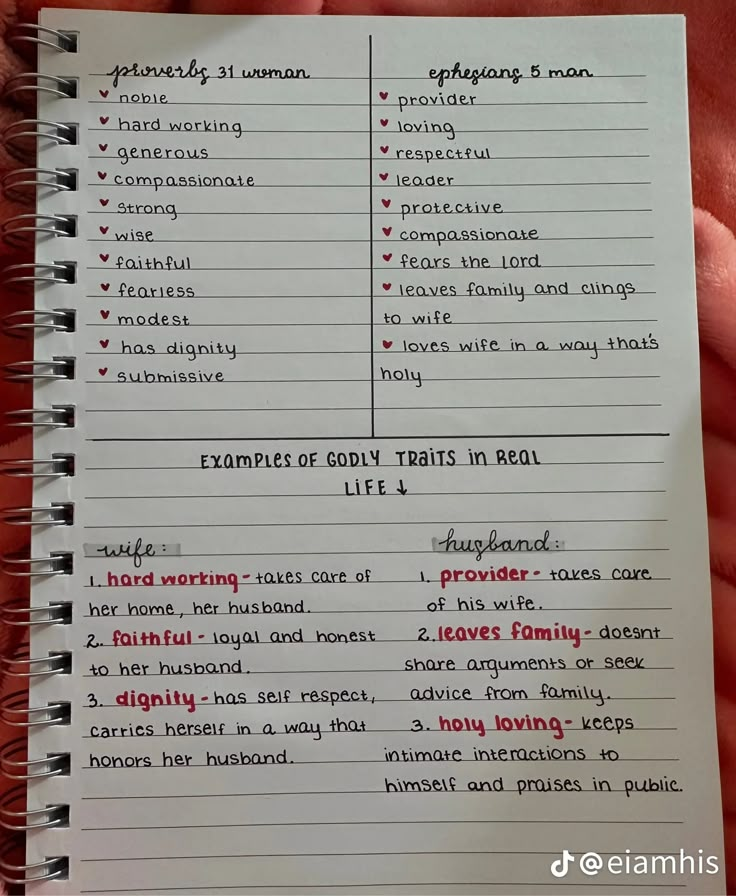 proverbs 31 woman
♥ noble
♥ hard working
♥ generous
♥ compassionate
♥ strong
♥ wise
♥ faithful
♥ fearless
♥ modest
♥ has dignity
♥ submissive
ephesians 5 man
♥ provider
♥ loving
♥ respectful
♥ leader
♥ protective
♥ compassionate
♥ fears the lord
♥ leaves family and clings
to wife
♥ loves wife in a way that's
holy
EXAMPLES OF GODLY TRAITS in REAL
LIFE ↓
wife:
1. hard working - takes care of
her home, her husband.
2. faithful - loyal and honest
to her husband.
3. dignity - has self respect,
carries herself in a way that
honors her husband.
husband:
1. provider - takes care
of his wife.
2. leaves family - doesnt
share arguments or seek
advice from family.
3. holy loving - keeps
intimate interactions to
himself and praises in public.
@eiamhis